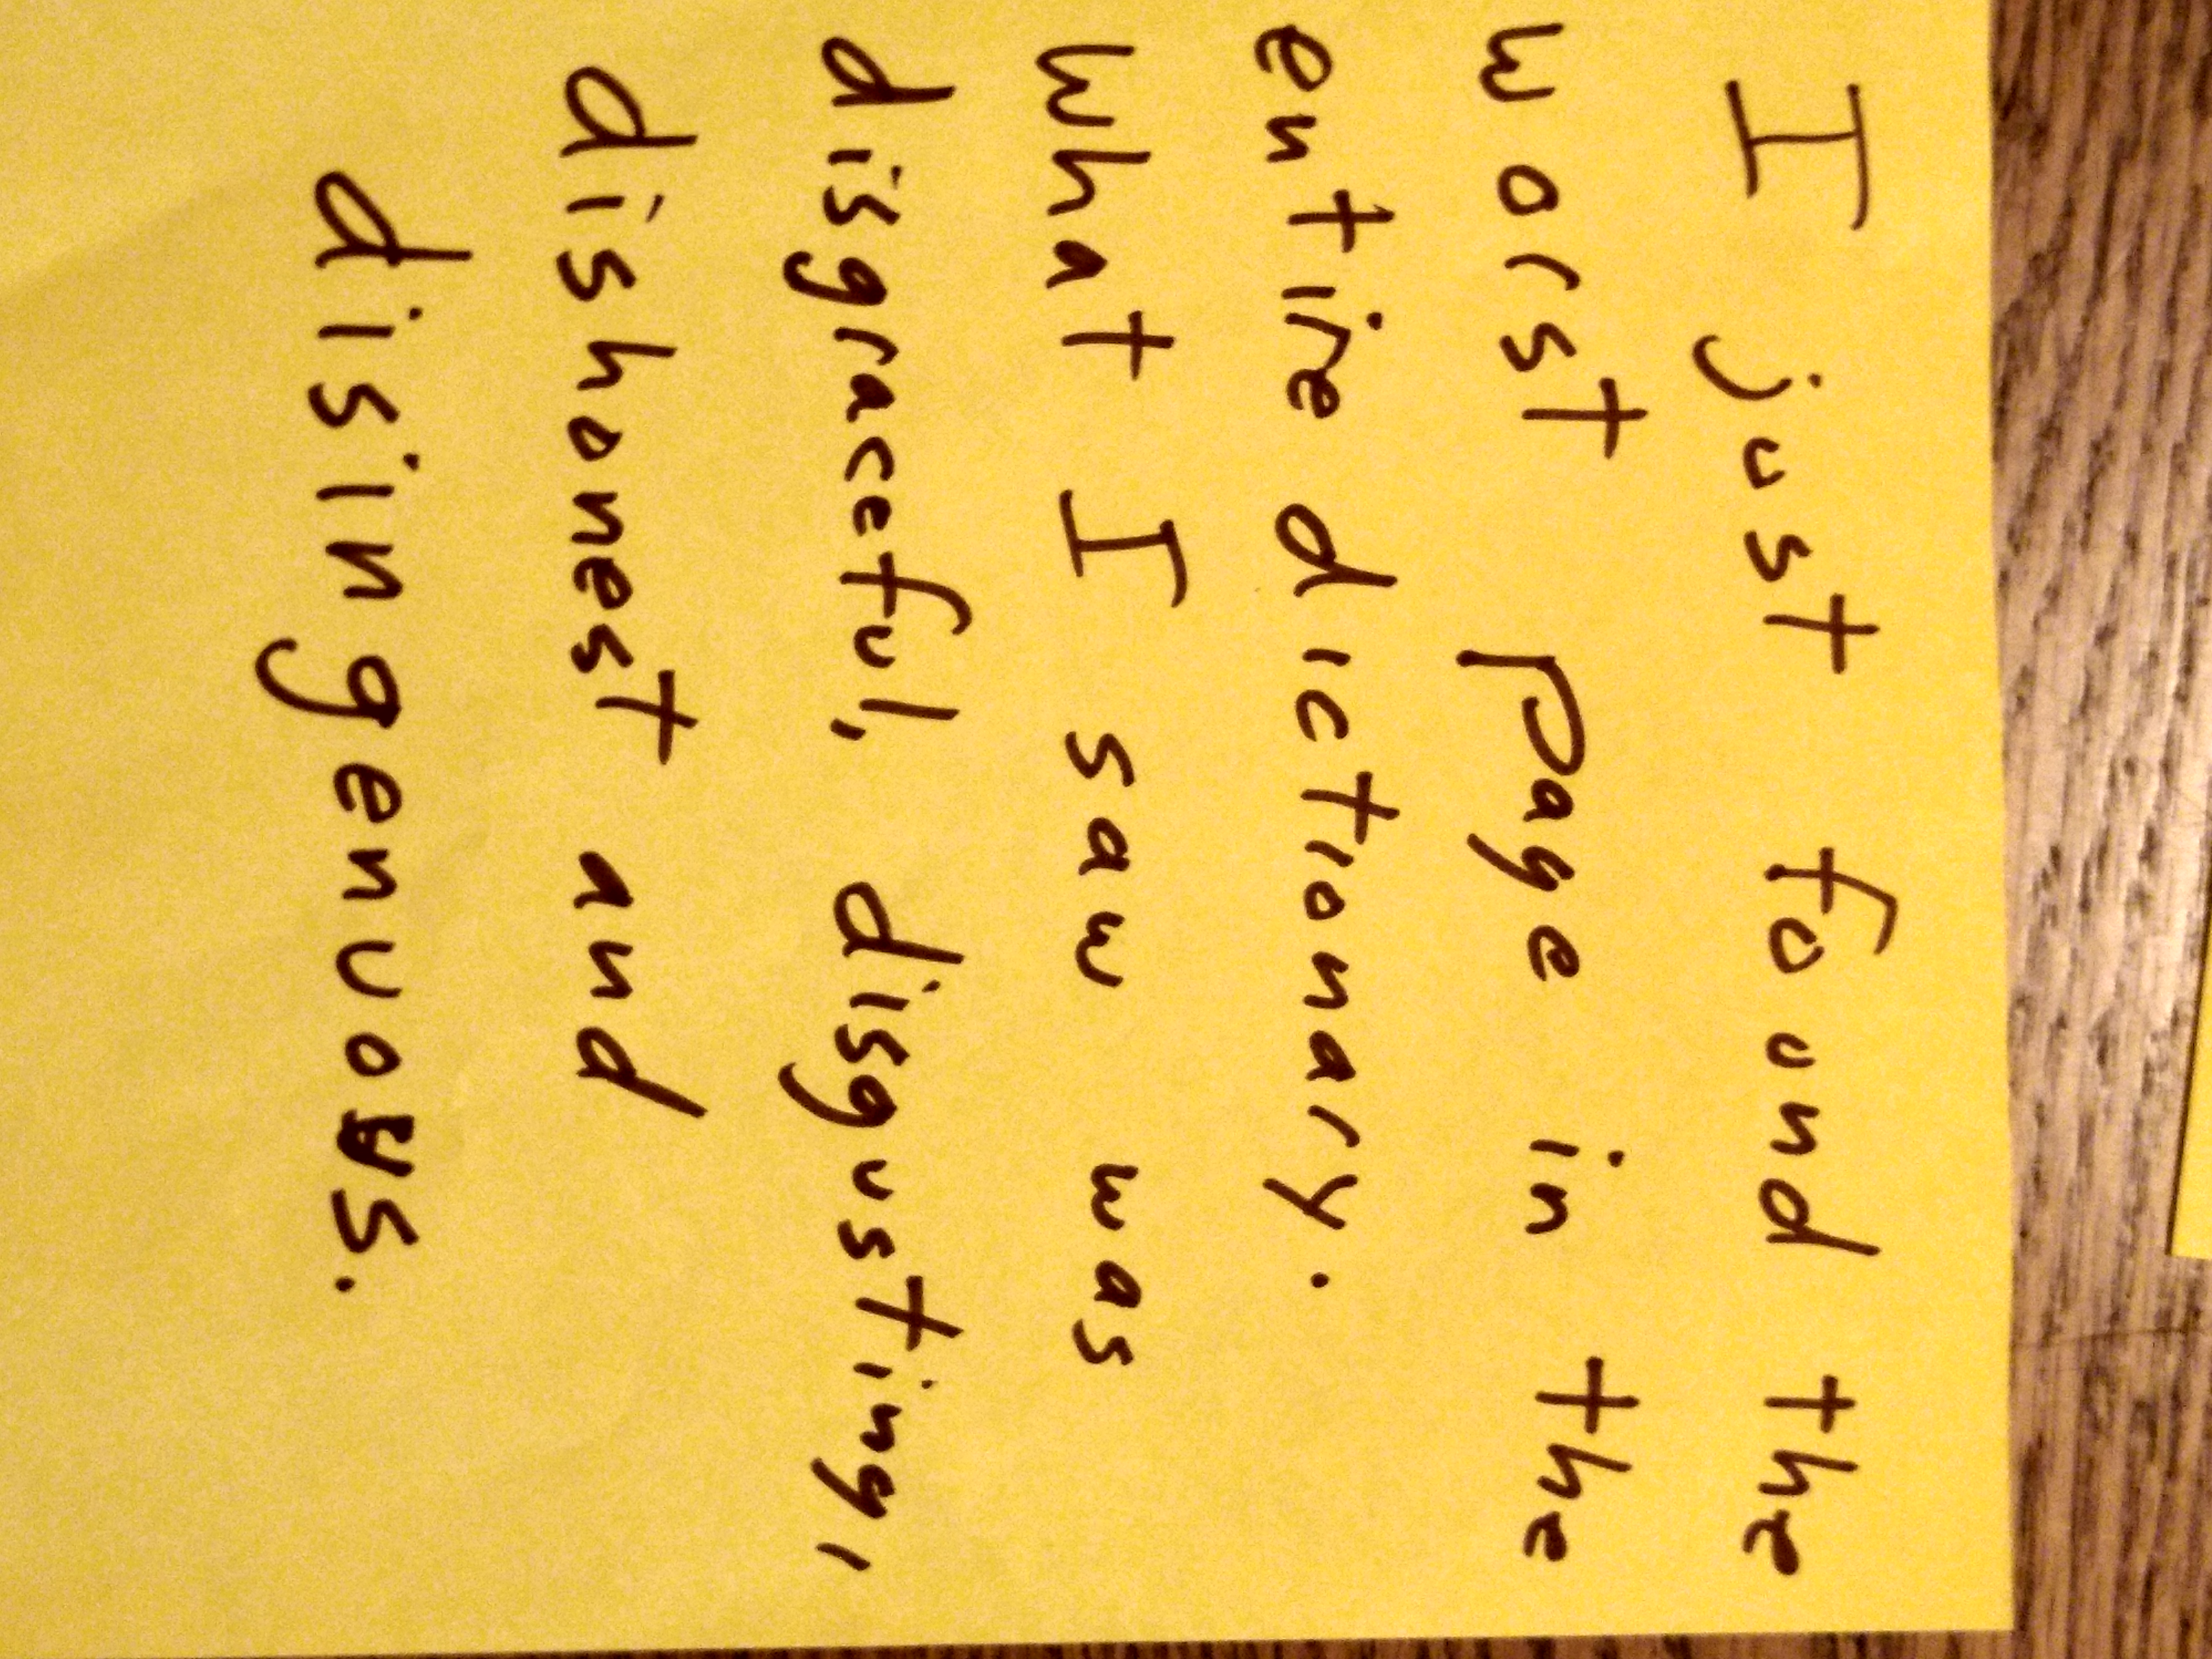 I just found the
worst page in the
entire dictionary.
What I saw was
disgraceful, disgusting,
dishonest and
disingenuous.